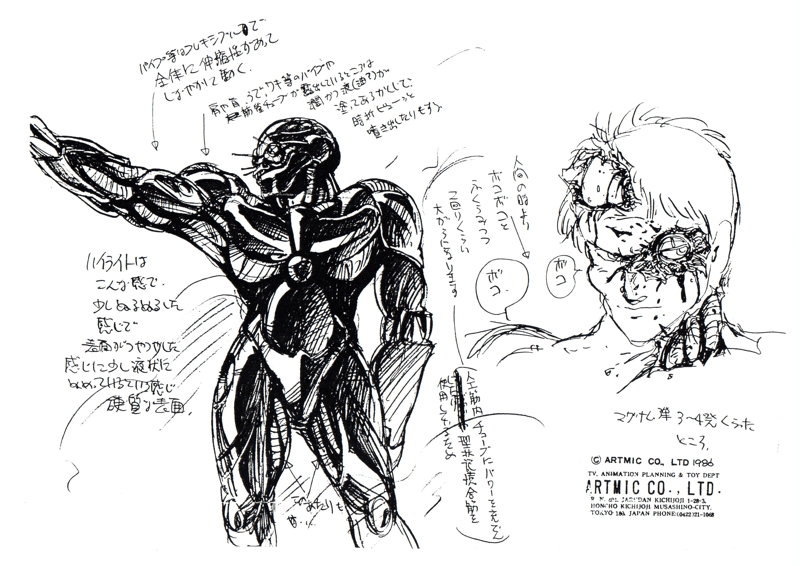 パイプ等はフレキシブルで
全体に伸縮性があって
しなやかに動く.
肩や首、うで、ワキ等のパイプや
筋肉チューブが露出しているところは
潤かつ液(油?)が
塗ってあるかんじで
時折ピューッと
噴き出したりもする
ハイライトは
こんな感じで
少しぬるぬるした
感じで
表面がつやつやした
感じに少し液状に
ぬめっているという感じ
硬質な表面.
このあたりも
人間の時より
ボコボコと
ふくらみつつ
二回りくらい
大がらになります
ボコ
ボコ
人工筋肉チューブにパワーを
形状記憶合金を
使用しているため
マグナム弾 3〜4発くらった
ところ.
© ARTMIC CO., LTD 1986
TV, ANIMATION PLANNING & TOY DEPT
ARTMIC CO., LTD.
KICHIJOJI 1-28-3,
HONCHO KICHIJOJI MUSASHINO-CITY,
TOKYO 180, JAPAN PHONE(0422)21-1068